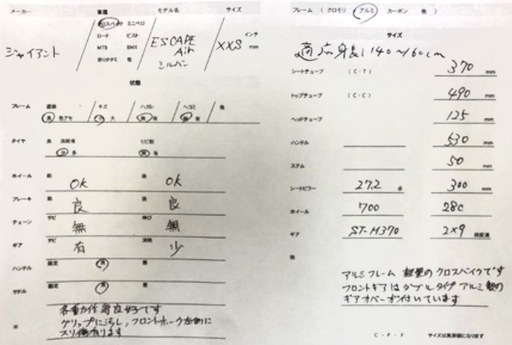 メーカー 車種 モデル名 サイズ
クロスバイク ミニベロ
ロード ピスト
MTB BMX
折りたたみ 他
ジャイアント ESCAPE Air シルバー XXS インチ mm
状態
フレーム 塗装 キズ ハガレ ヘコミ 他
良 色アセ 小 大 無 有 無 有
タイヤ 良 ひび割
無 有
ホイール 前 OK 後 OK
ブレーキ 前 良 後 良
チェーン サビ 無 伸び 無
ギア サビ 有 消耗 少
ハンドル 固定 良
サドル 固定 良
各重力作動良好です
グリップに汚れ、フロントホーク左側に
スリ傷有ります
フレーム ( クロモリ アルミ カーボン 他 )
サイズ
適応身長 140〜160cm
シートチューブ (C-T) 370 mm
トップチューブ (C-C) 490 mm
ヘッドチューブ 125 mm
ハンドル 530 mm
ステム 50 mm
シートピラー 27.2 φ 300 mm
ホイール 700 28C
ギア ST-H370 2×9 段変速
アルミフレーム 軽量のクロスバイクです
フロントギアはダブルタイプ アルミ製の
ギアカバーが付いています
C - P - F サイズは実測値になります